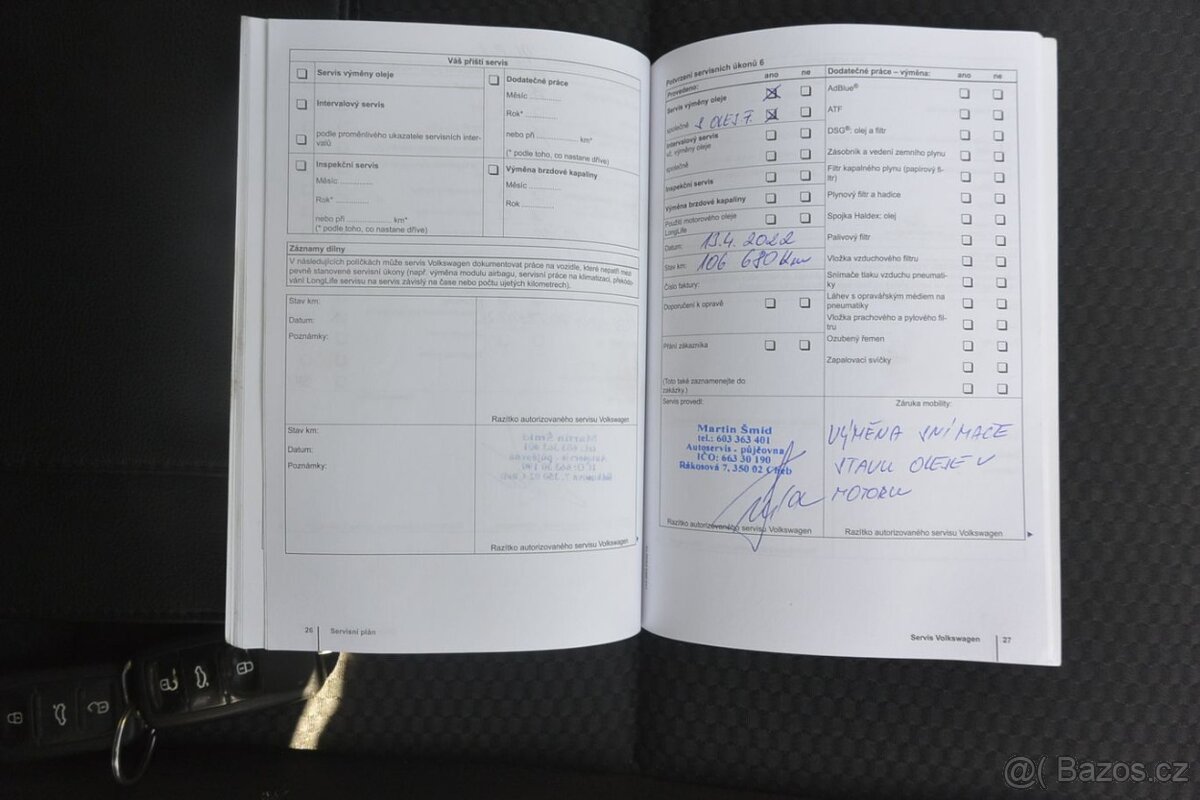 Váš příští servis
Servis výměny oleje
Intervalový servis
podle proměnlivého ukazatele servisních inter-
valů
Inspekční servis
Měsíc ...............
Rok* ...............
nebo při .................... km*
(* podle toho, co nastane dříve)
Dodatečné práce
Měsíc ..............
Rok* ..............
nebo při .................... km*
(* podle toho, co nastane dříve)
Výměna brzdové kapaliny
Měsíc ..............
Rok ..............
Záznamy dílny
V následujících políčkách může servis Volkswagen dokumentovat práce na vozidle, které nepatří mezi
pevně stanovené servisní úkony (např. výměna modulu airbagu, servisní práce na klimatizaci, překódo-
vání LongLife servisu na servis závislý na čase nebo počtu ujetých kilometrech).
Stav km:
Datum:
Poznámky:
Razítko autorizovaného servisu Volkswagen
Stav km:
Datum:
Poznámky:
Razítko autorizovaného servisu Volkswagen
26 Servisní plán
Potvrzení servisních úkonů 6
Provedeno: ano ne
Servis výměny oleje
společně S OLEJ F.
Intervalový servis
vč. výměny oleje
společně
Inspekční servis
Výměna brzdové kapaliny
Použití motorového oleje
LongLife
Datum: 13.4. 2022
Stav km: 106 680 km
Číslo faktury:
Doporučení k opravě
Přání zákazníka
(Toto také zaznamenejte do
zakázky.)
Servis provedl:
Martin Šmíd
tel.: 603 363 401
Autoservis - půjčovna
IČO: 663 30 190
Rákosová 7, 350 02 Cheb
Razítko autorizovaného servisu Volkswagen
Dodatečné práce – výměna: ano ne
AdBlue®
ATF
DSG®: olej a filtr
Zásobník a vedení zemního plynu
Filtr kapalného plynu (papírový fi-
ltr)
Plynový filtr a hadice
Spojka Haldex: olej
Palivový filtr
Vložka vzduchového filtru
Snímače tlaku vzduchu pneumati-
ky
Láhev s opravářským médiem na
pneumatiky
Vložka prachového a pylového fil-
tru
Ozubený řemen
Zapalovací svíčky
Záruka mobility:
VÝMĚNA SNÍMAČE
STAVU OLEJE V
MOTORU
Razítko autorizovaného servisu Volkswagen
Servis Volkswagen 27
@( Bazos.cz